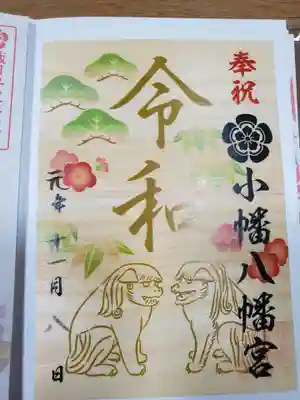 奉祝
小幡八幡宮
令和
元年十一月八日